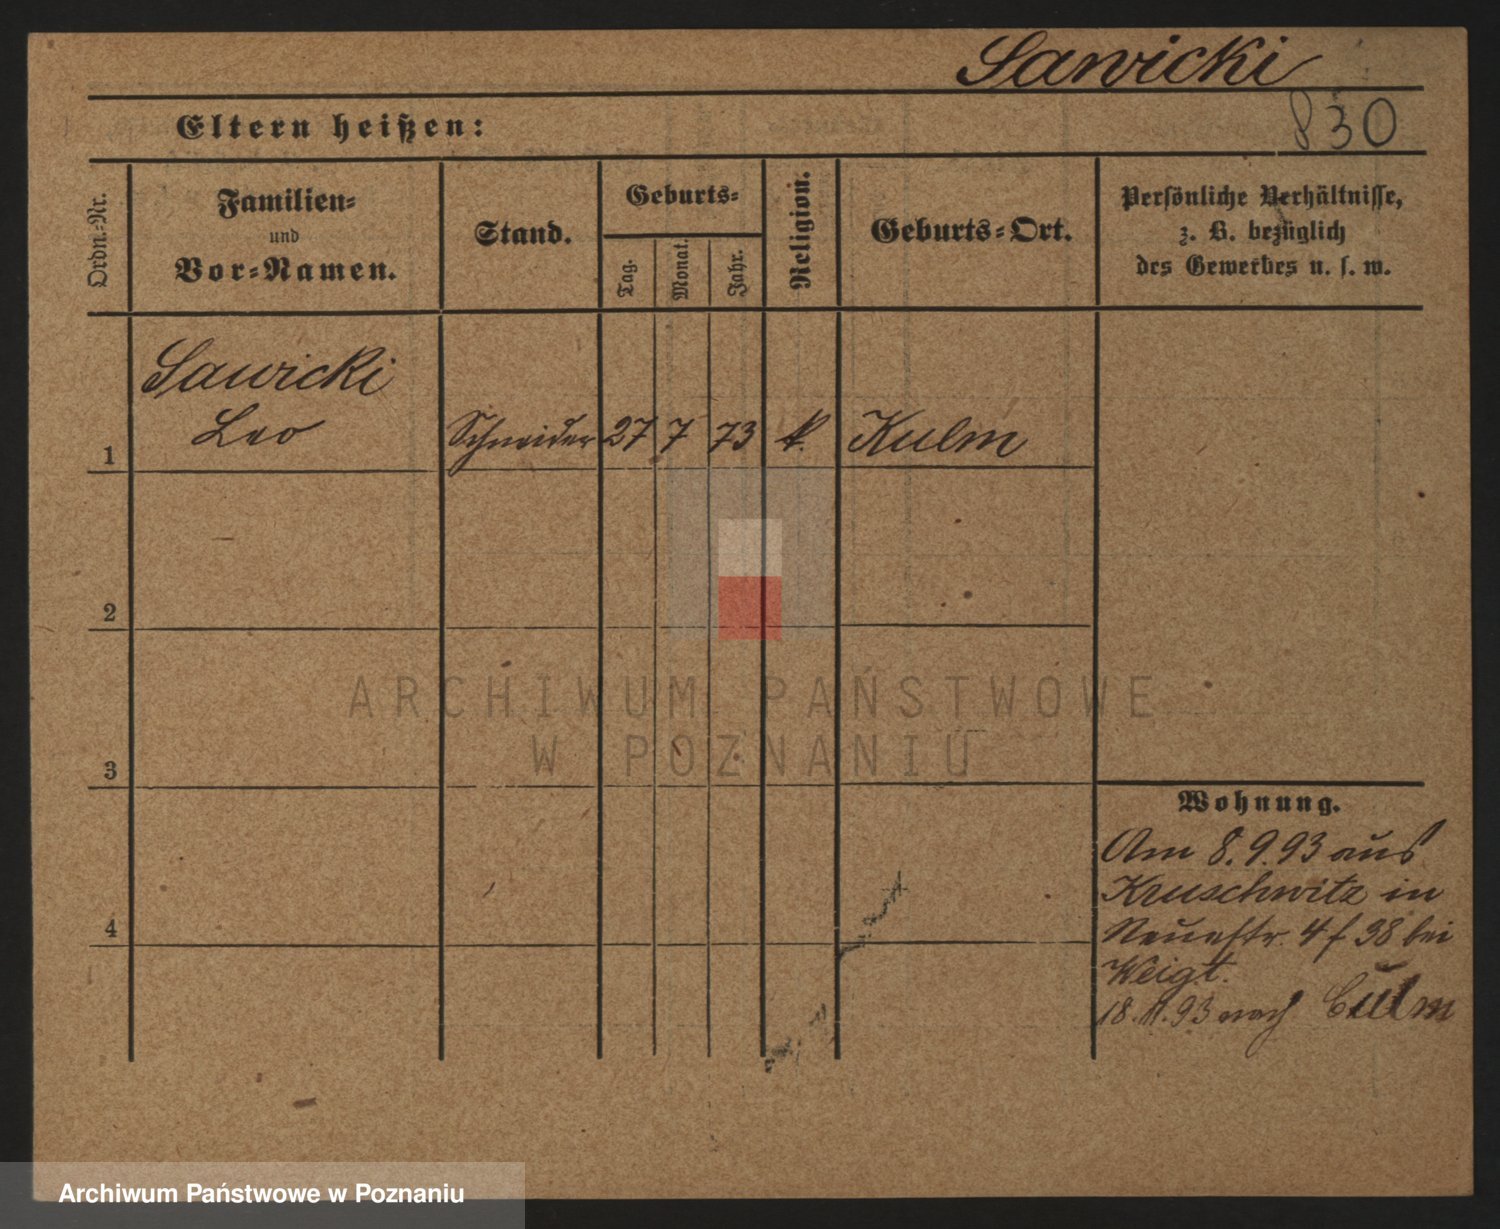 Sawicki
830
Eltern heißen:
Ordn.-Nr.
Familien-
und
Vor-Namen.
Stand.
Geburts-
Tag.
Monat.
Jahr.
Religion.
Geburts-Ort.
Persönliche Verhältnisse,
z. B. bezüglich
des Gewerbes u. s. w.
Sawicki
1 Leo Schneider 27 7 73 k. Kulm
2
3
Wohnung.
Am 8.9.93 aus
Kruschwitz in
4
Neuestr. 4 f 38 bei
Weigt.
18.11.93 nach Culm
ARCHIWUM PAŃSTWOWE
W POZNANIU
Archiwum Państwowe w Poznaniu